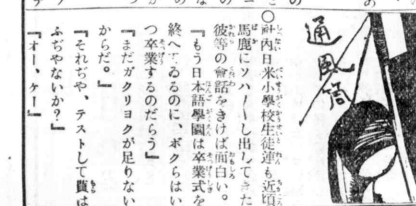 通風筒
〇市內日米小學校生徒連も近頃
馬鹿にソハ〳〵し出してきた
彼等の會話をきけば面白い。
『もう日本語學園は卒業式を
終へてゐるのに、ボクらはい
つ卒業するのだらう』
『まだガクリヨクが足りない
からだ。』
『それぢや、テストして貰は
ふぢやないか？』
『オー、ケー』